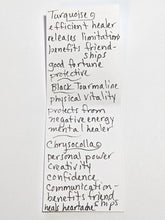 Turquoise
efficient healer
releases limitation
benefits friend-
ships
good fortune
protective
Black Tourmaline
physical vitality
protects from
negative energy
mental healer
Chrysocolla
personal power
creativity
confidence
communication-
benefits friend
ships
heals heartache